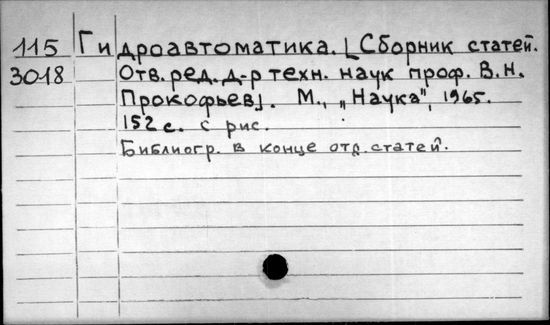 115 Гидроавтоматика. [Сборник статей.
3018 Отв. ред. д-р техн. наук проф. В.Н.
Прокофьев]. М., „Наука", 1965.
152 с. с рис.
Библиогр. в конце отд. статей.